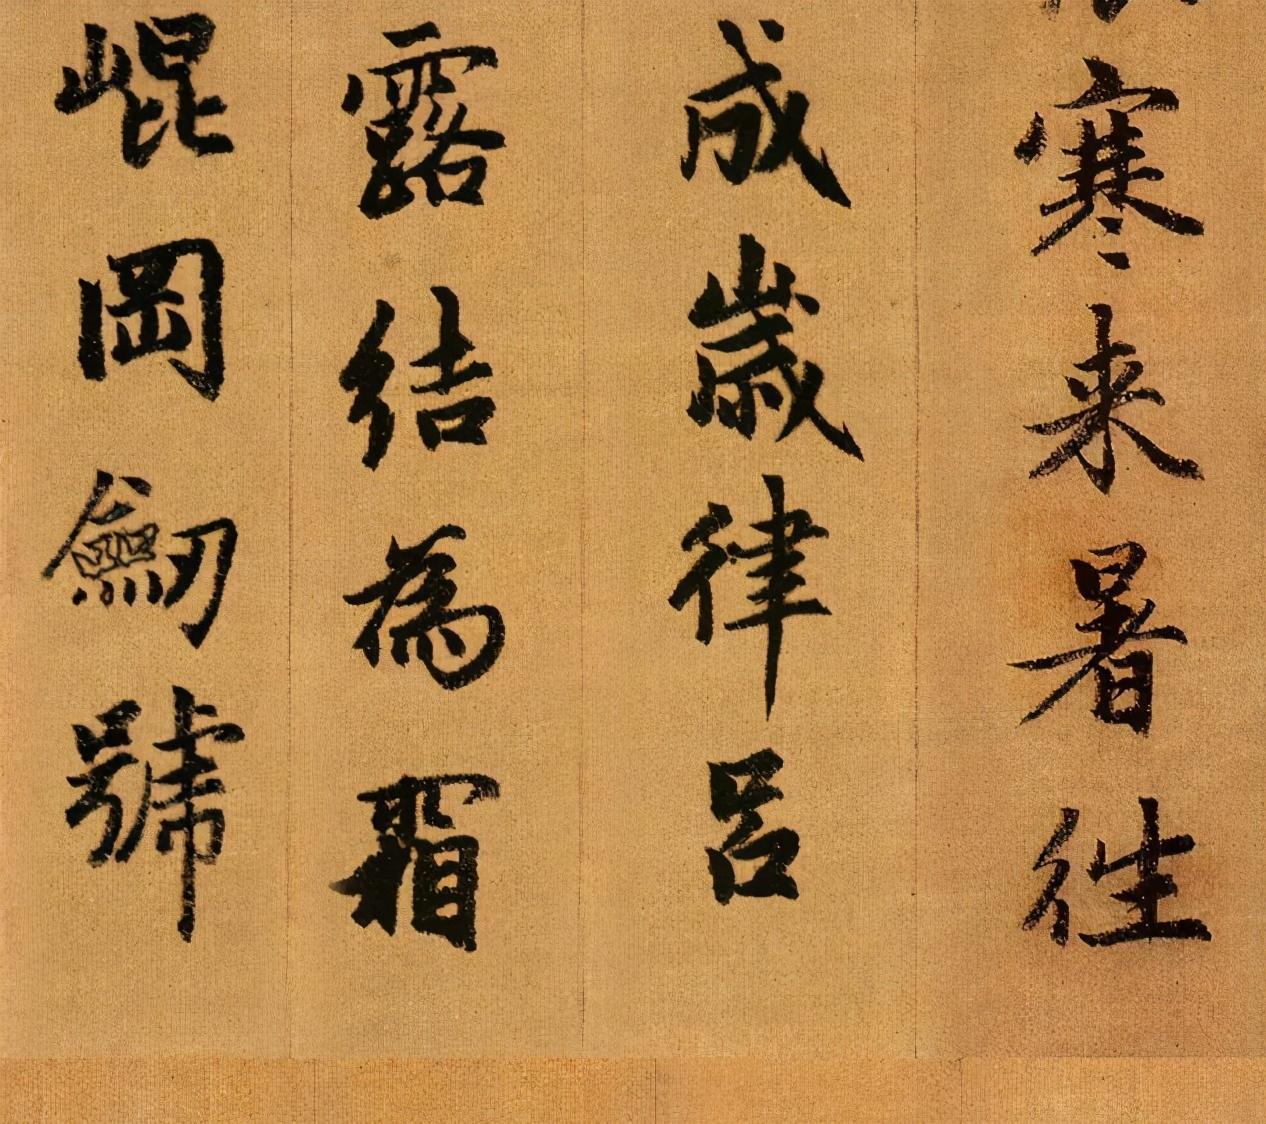 寒来暑往
成歲律呂
露結為霜
崐岡劒號